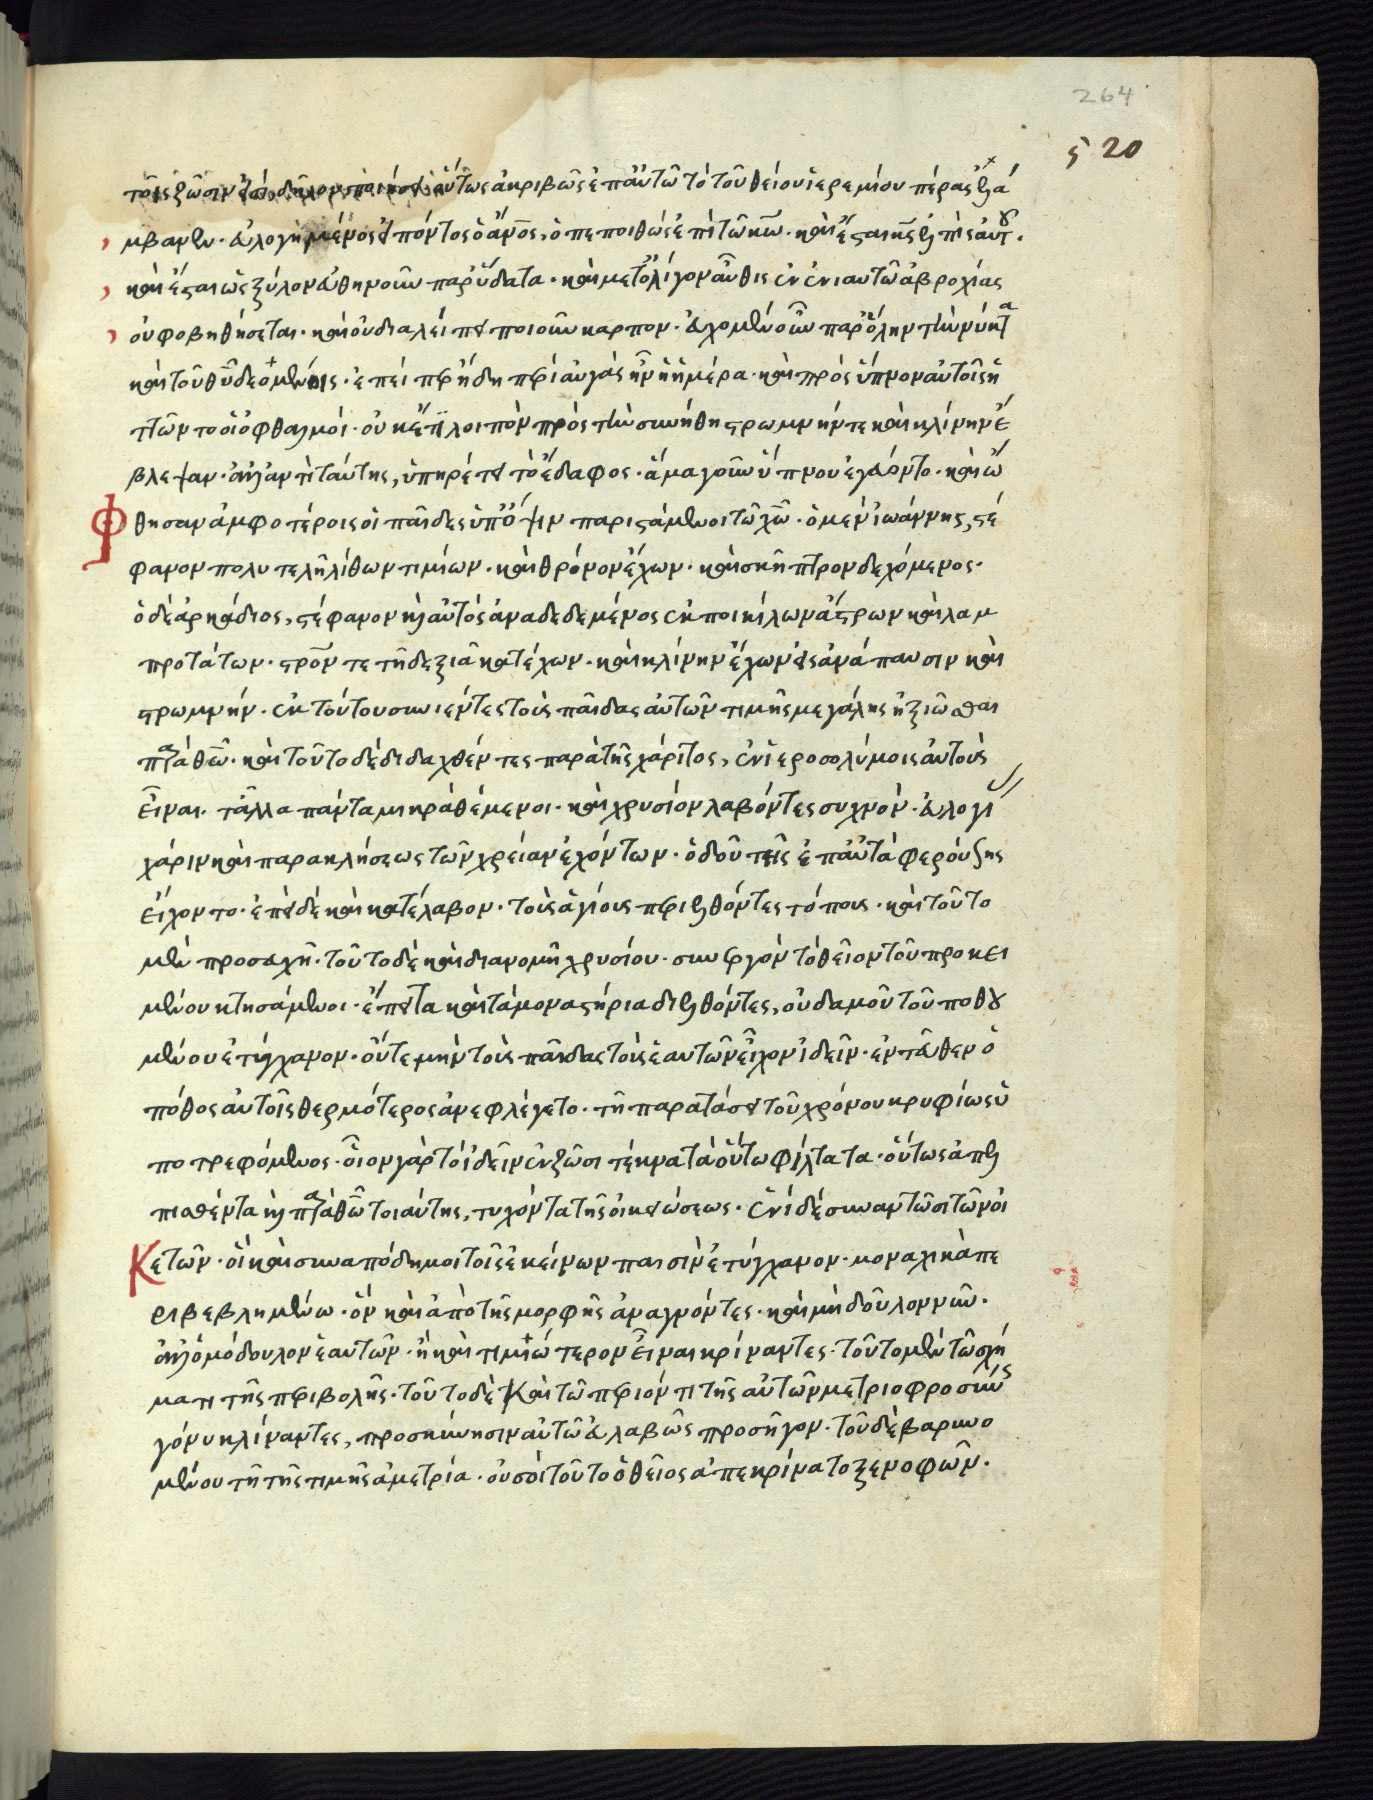 264
520
τοῖς ζῶσιν οὕτως ἀκριβῶς ἐπ αὐτῶ τὸ τοῦ θείου ἱερεμίου πέρας ἐλά
μβανεν· εὐλογημένος εἰπόντος ὁ ἄνος, ὁ πεποιθὼς ἐπὶ τῶ κω· καὶ ἔσται κς ἐλπὶς αὐτοῦ·
καὶ ἔσται ὡς ξύλον εὐθηνοῦν παρ ὕδατα· καὶ μετ ὀλίγον αὖθις ἐν ἐνιαυτῶ ἀβροχίας
οὐ φοβηθήσεται· καὶ οὐ διαλείπει ποιοῦν καρπον· εὐχομένοις οὖν παρ ὅλην τὴν νύκτα
καὶ τοῦ θυ δεομένοις· ἐπεὶ περ ἤδη περὶ αὐγὰς ἦν ἡ ἡμέρα· καὶ πρὸς ὕπνον αὐτοῖς ἡ
πτῶντο οἱ ὀφθαλμοί· οὐκ ἔτι λοιπὸν πρὸς τὴν συνήθη στρωμνήν τε καὶ κλίνην ἔ
βλεψαν· ἀλλ ἀντὶ ταύτης, ὑπηρέτει τὸ ἔδαφος· ἅμα γοῦν ὕπνου ἐγεύοντο· καὶ ὤ
φθησαν ἀμφοτέροις οἱ παῖδες ὑπ ὄψιν παριστάμενοι τῶ χω· ὁ μὲν ἰωάννης, στέ
φανον πολυτελῆ λίθων τιμίων· καὶ θρόνον ἔχων· καὶ σκῆπτρον δεχόμενος·
ὁ δὲ ἀρκάδιος, στέφανον καὶ αὐτὸς ἀναδεδεμένος ἐκ ποικίλων ἄστρων καὶ λαμ
προτάτων· στρον τε τῆ δεξιᾶ κατέχων· καὶ κλίνην ἔχων εἰς ἀνάπαυσιν καὶ
στρωμνήν· ἐκ τούτου συνιέντες τοὺς παῖδας αὐτῶν τιμῆς μεγάλης ἠξιῶσθαι
παρὰ θεῶ· καὶ τοῦτο δὲ διδαχθέντες παρὰ τῆς χάριτος, ἐν ἱεροσολύμοις αὐτοὺς
εἶναι· τἄλλα πάντα μικρὰ θέμενοι· καὶ χρυσίον λαβόντες συχνὸν· εὐλογί
χάριν καὶ παρακλήσεως τῶν χρείαν ἐχόντων· ὁδοῦ τῆς ἐπ αὐτὰ φερούσης
εἴχοντο· ἐπεὶ δὲ καὶ κατέλαβον· τοὺς ἁγίους περιελθόντες τόπους· καὶ τοῦτο
μὲν προσευχῆ· τοῦτο δὲ καὶ διανομῆ χρυσίου· συνεργὸν τὸ θεῖον τοῦ προκει
μένου κτησάμενοι· ἔπειτα καὶ τὰ μοναστήρια διελθόντες, οὐδαμοῦ τοῦ ποθου
μένου ἐτύγχανον· οὔτε μὴν τοὺς παῖδας τοὺς ἑαυτῶν εἶχον ἰδεῖν· ἐντεῦθεν ὁ
πόθος αὐτοῖς θερμότερος ἀνεφλέγετο· τῆ παρατάσει τοῦ χρόνου κρυφίως ὑ
ποτρεφόμενος· οἷον γὰρ τὸ ἰδεῖν ἐν ζῶσι τέκνα τὰ οὕτω φίλτατα· οὕτως ἀπελ
πισθέντα καὶ παρὰ θεῶ τοιαύτης, τυχόντα τῆς οἰκειώσεως· ἑνὶ δὲ συναντῶσι τῶν οἰ
κετῶν· οἳ καὶ συναπόδημοι τοῖς ἐκείνων παισὶν ἐτύγχανον· μοναχικὰ πε
ριβεβλημένω· ὃν καὶ ἀπὸ τῆς μορφῆς ἀναγνόντες· καὶ μὴ δοῦλον νῦν·
ἀλλ ὁμόδουλον ἑαυτῶν· ἢ καὶ τιμιώτερον εἶναι κρίναντες· τοῦτο μὲν τῶ σχή
ματι τῆς περιβολῆς· τοῦτο δὲ καὶ τῶ περιόντι τῆς αὐτῶν μετριοφροσύνης
γόνυ κλίναντες, προσκύνησιν αὐτῶ εὐλαβῶς προσῆγον· τοῦ δὲ βαρυνο
μένου τῆ τῆς τιμῆς ἀμετρία· οὐ σοὶ τοῦτο ὁ θεῖος ἀπεκρίνατο ξενοφῶν·